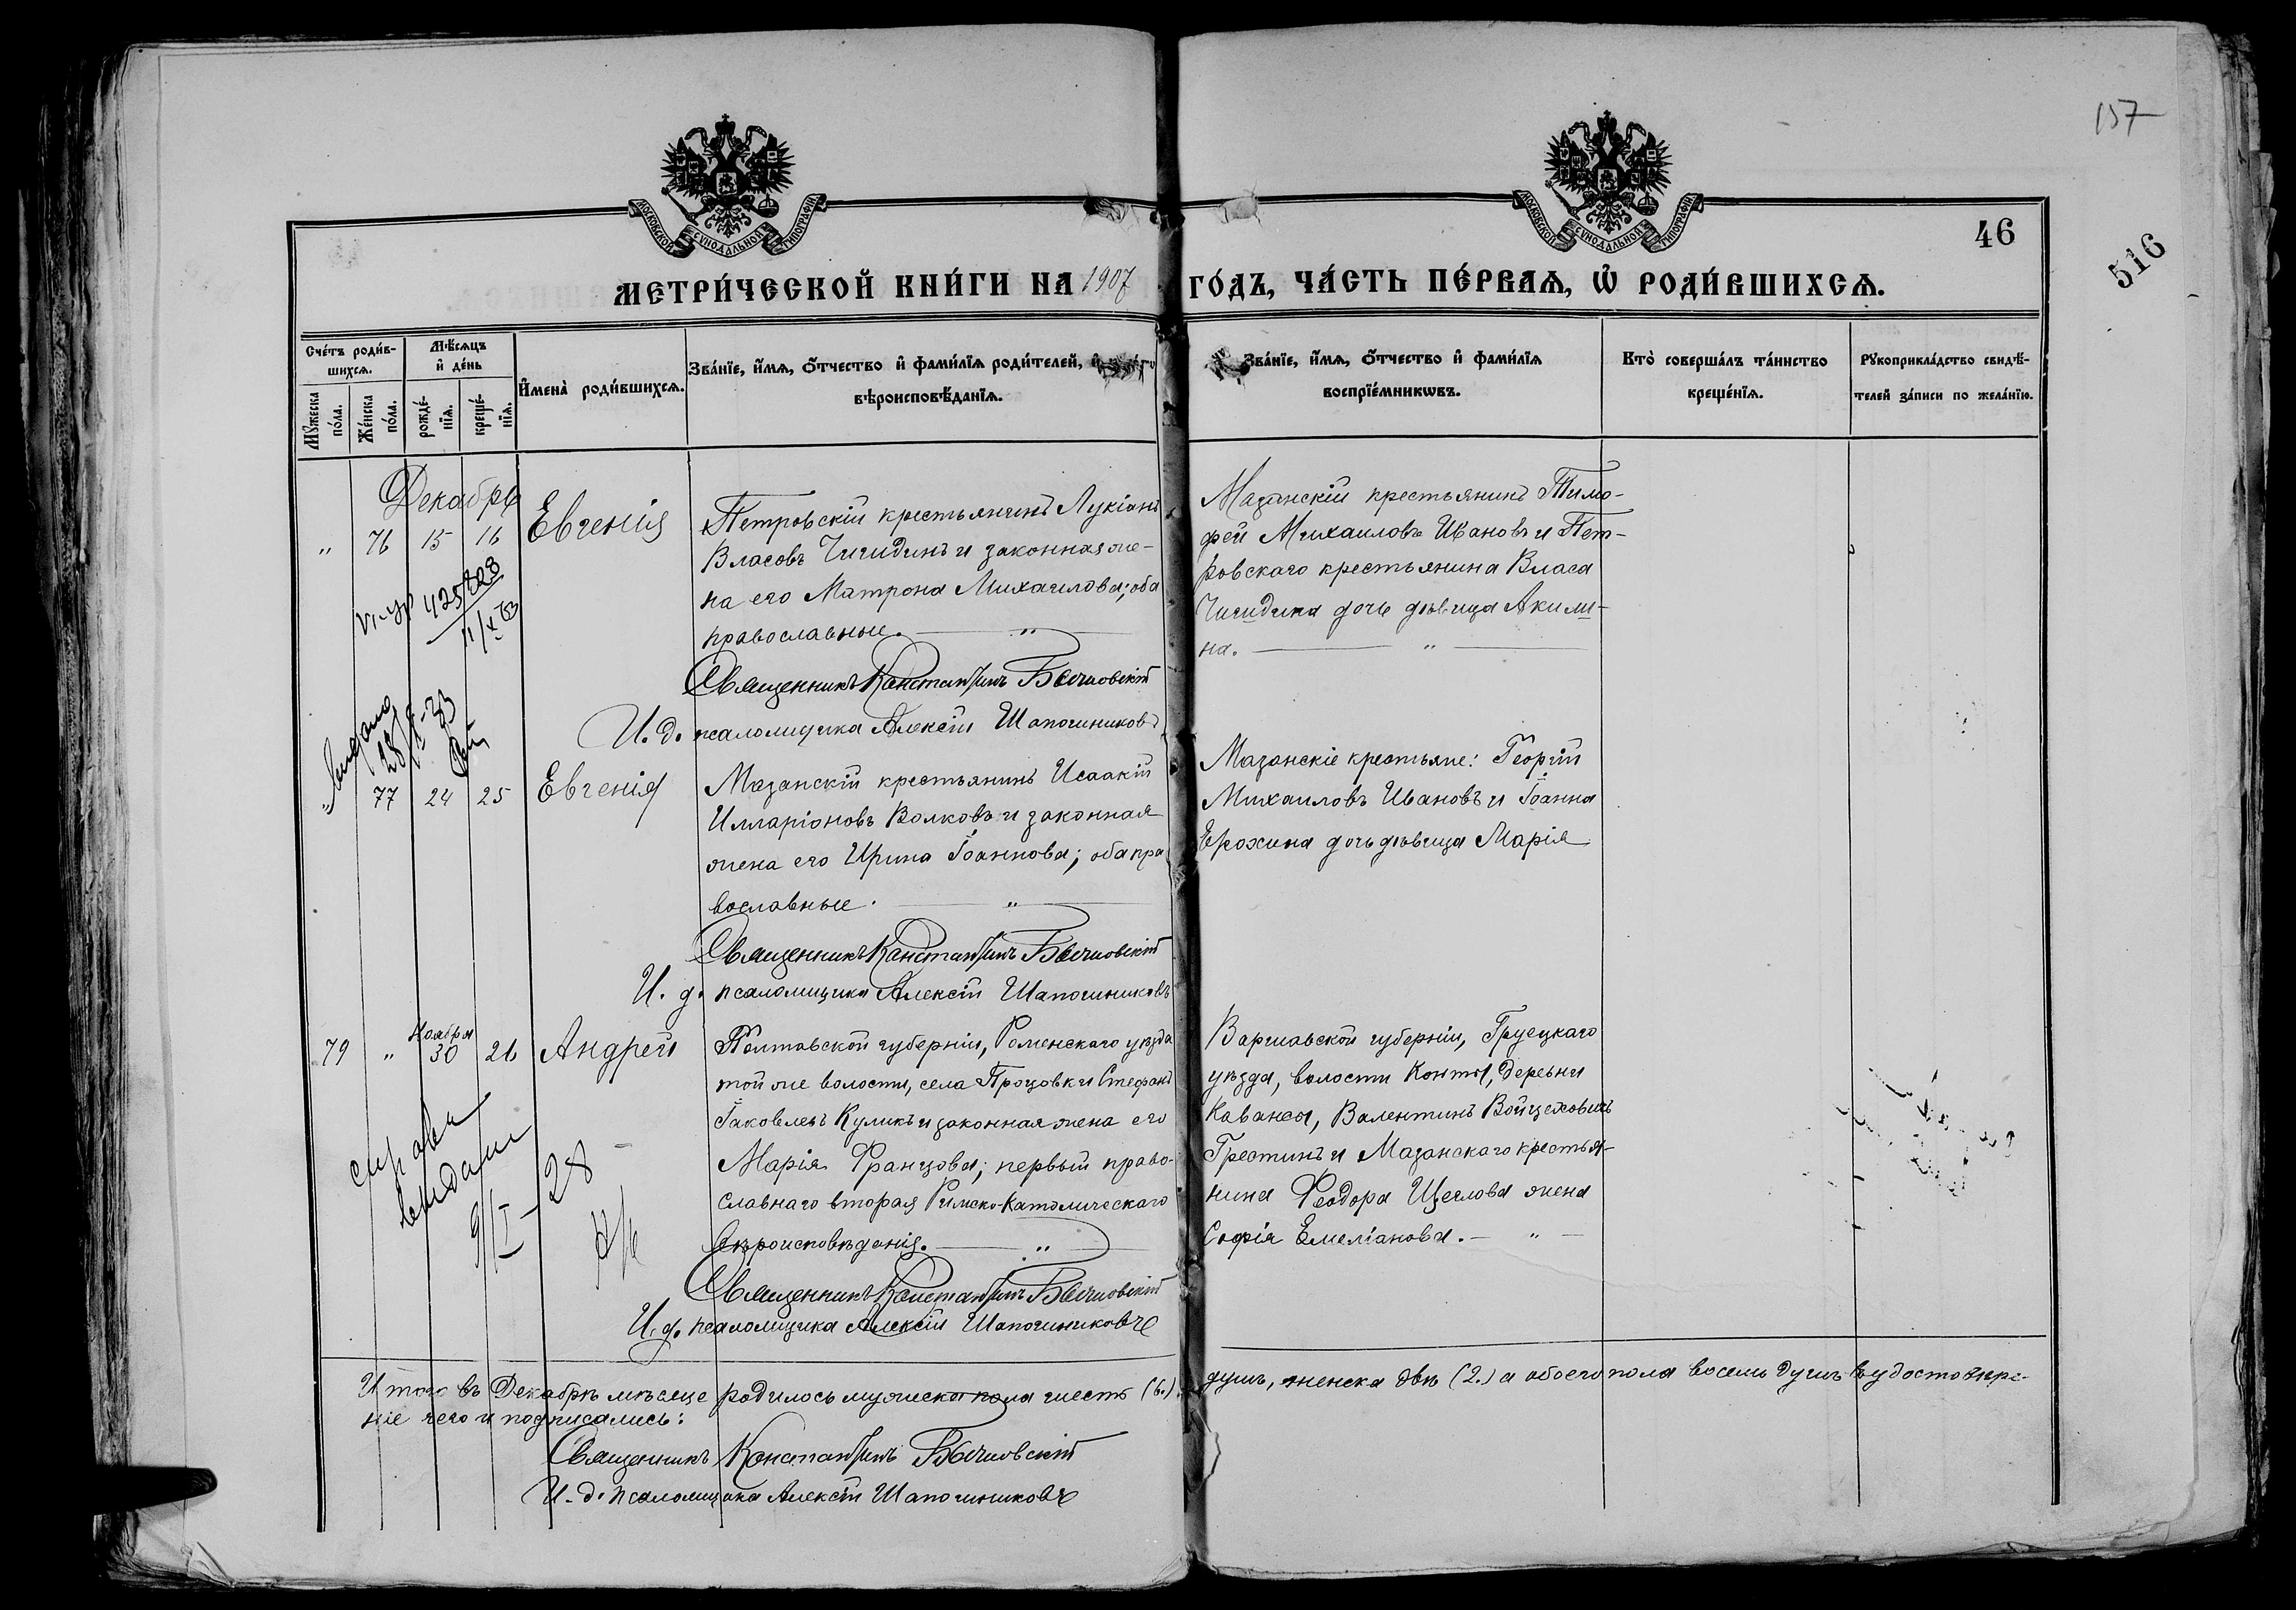 157
46
516
МОСКОВСКОЙ СУНОДАЛЬНОЙ ТИПОГРАФІИ
МОСКОВСКОЙ СУНОДАЛЬНОЙ ТИПОГРАФІИ
МЕТРИ́ЧЕСКОЙ КНИ́ГИ НА 1907 ГО́ДЪ, ЧА́СТЬ ПЕ́РВАѦ, Ѡ РОДИ́ВШИХСѦ.
Сче́тъ роди́в-
шихсѧ.
Мꙋжеска
по́ла.
Же́нска
по́ла.
Мѣ́сѧцъ
и де́нь
рожде́-
нїѧ.
креще́-
нїѧ.
Имена̀ роди́вшихсѧ.
Зва́нїе, и́мѧ, ѻ́тчество и фами́лїѧ роди́телей, и
вѣроисповѣ́данїѧ.
Зва́нїе, и́мѧ, ѻ́тчество и фами́лїѧ
воспрїе́мникѡвъ.
Кто̀ соверша́лъ та́инство
креще́нїѧ.
Рꙋкоприкла́дство свидѣ́-
телей за́писи по жела́нїю.
Декабрь
" 76 15 16 Евгенія
Петровскій крестьянинъ Лукіанъ
Власовъ Чигидинъ и законная же-
на его Матрона Михаилова; оба
православные. "
Священникъ Константинъ Бычковскій
И. д. псаломщика Алексій Шапошниковъ
Мазанскій крестьянинъ Тимо-
фей Михаиловъ Ивановъ и Пет-
ровскаго крестьянина Власа
Чигидина дочь дѣвица Акили-
на. "
" 77 24 25 Евгенія
Мазанскій крестьянинъ Исаакій
Илларіоновъ Волковъ и законная
жена его Ирина Іоаннова; оба пра
вославные. "
Священникъ Константинъ Бычковскій
И. д. псаломщика Алексій Шапошниковъ
Мазанскіе крестьяне: Георгій
Михаиловъ Ивановъ и Іоанна
Ерохина дочь дѣвица Марія
Ноября
79 " 30 26 Андрей
Полтавской губерніи, Роменскаго уѣзда
той же волости, села Процовки Стефанъ
Іаковлевъ Куликъ и законная жена его
Марія Францова; первый право-
славнаго вторая Римско-Католическаго
вѣроисповѣданія. "
Священникъ Константинъ Бычковскій
И. д. псаломщика Алексій Шапошниковъ
Варшавской губерніи, Груецкаго
уѣзда, волости Конты, деревни
Кавенсы, Валентинъ Войцеховичъ
Грестинъ и Мазанскаго крестья-
нина Ѳеодора Щеглова жена
Софія Емеліанова. "
справка
выдана
9/I - 28
Итого въ Декабрѣ мѣсяце родилось мужеска пола шесть (6.) душъ, женска двѣ (2.) а обоего пола восемь душъ въ удостовѣре-
ніе чего и подписались:
Священникъ Константинъ Бычковскій
И. д. псаломщика Алексій Шапошниковъ